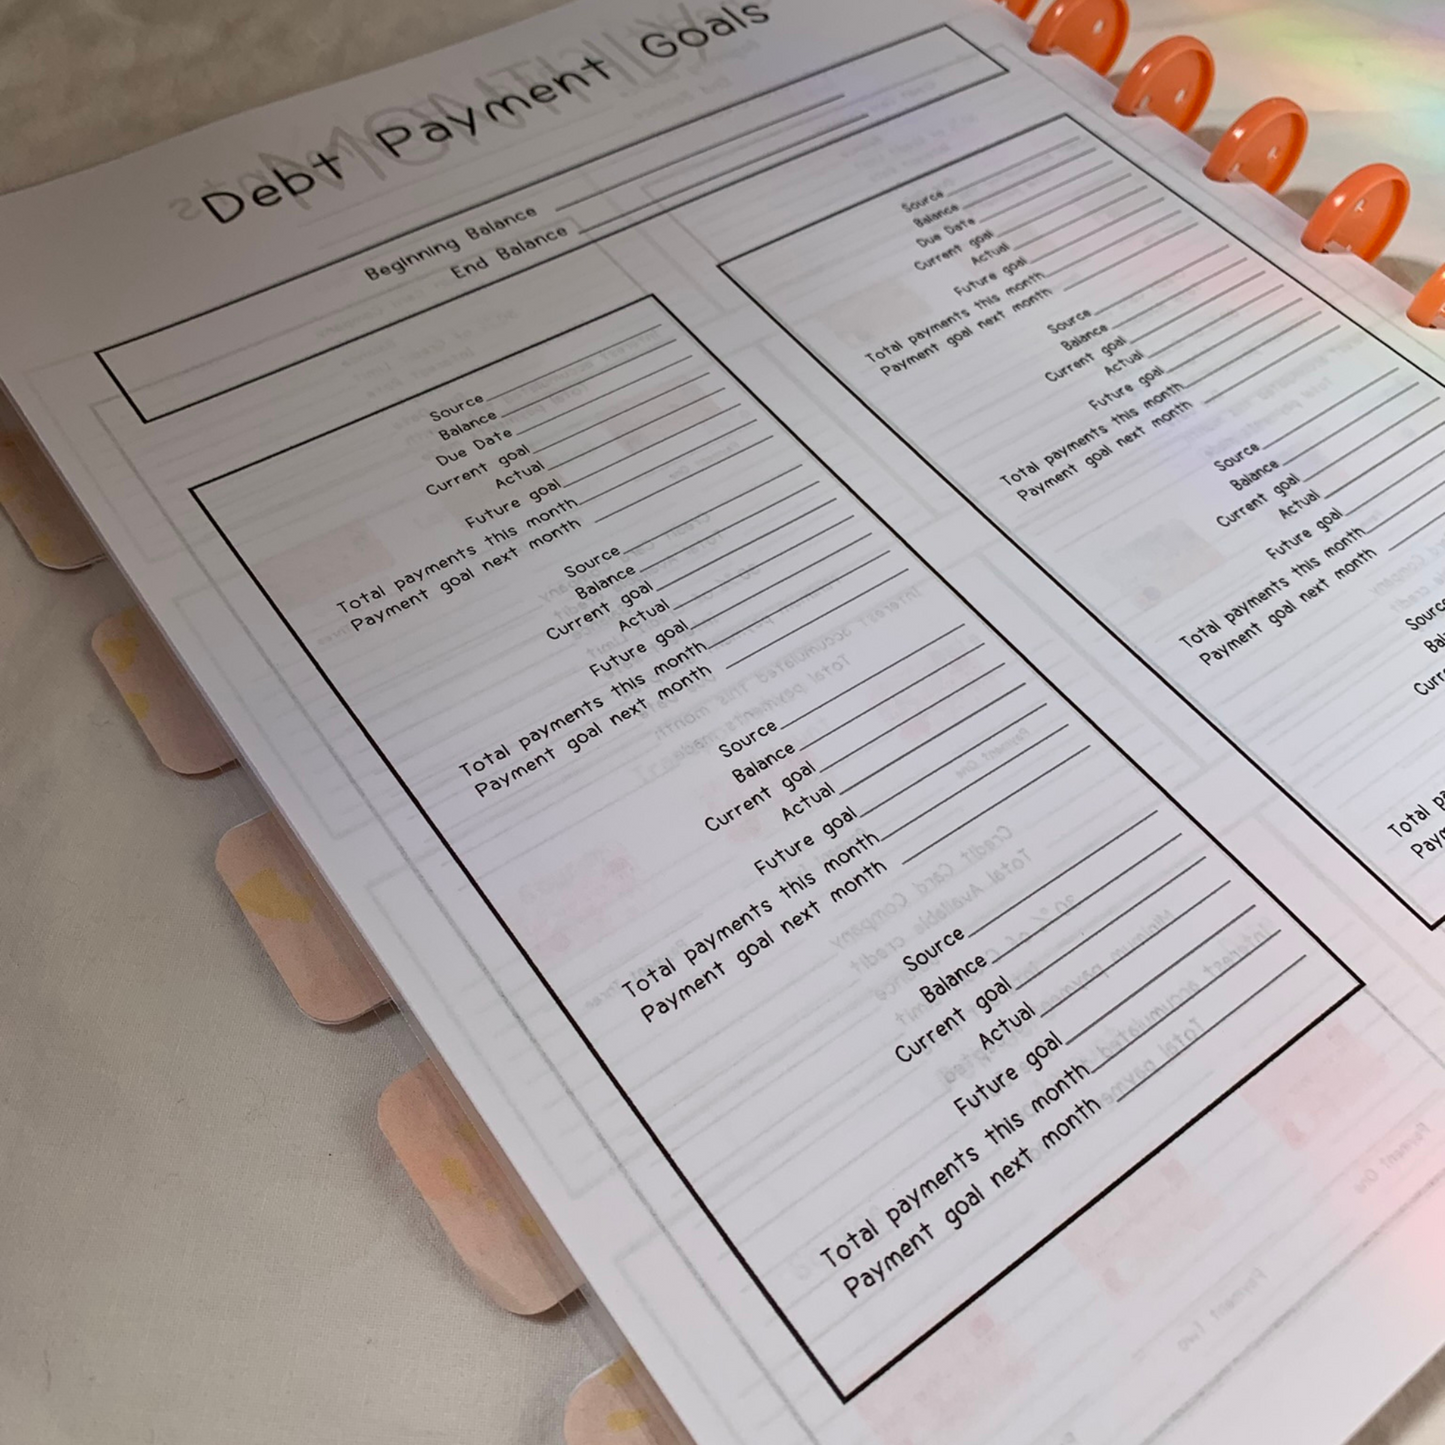 Debt Payment Goals
Beginning Balance
End Balance
Source
Balance
Due Date
Current goal
Actual
Future goal
Total payments this month
Payment goal next month
Source
Balance
Current goal
Actual
Future goal
Total payments this month
Payment goal next month
Source
Balance
Current goal
Actual
Future goal
Total payments this month
Payment goal next month
Source
Balance
Current goal
Actual
Future goal
Total payments this month
Payment goal next month
Source
Balance
Due Date
Current goal
Actual
Future goal
Total payments this month
Payment goal next month
Source
Balance
Current goal
Actual
Future goal
Total payments this month
Payment goal next month
Source
Balance
Current goal
Actual
Future goal
Total payments this month
Payment goal next month
Source
Total